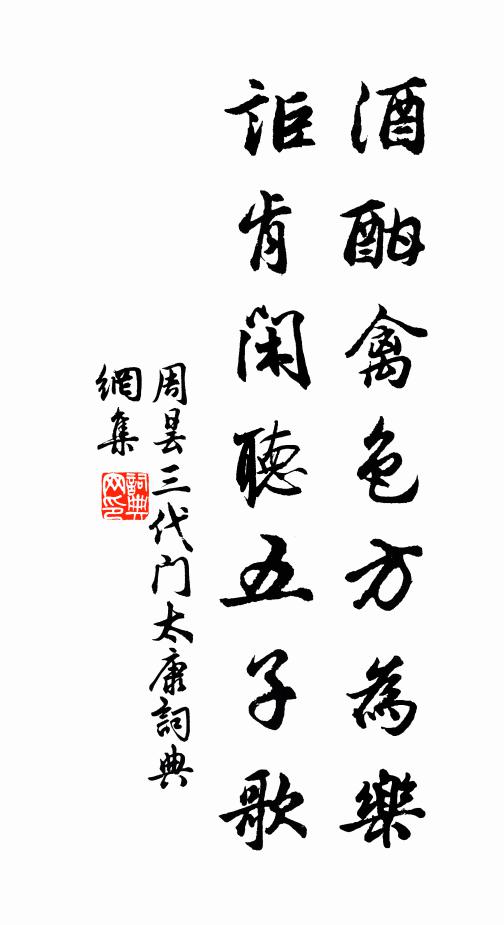 酒酣禽色方為樂
詎肯閑聽五子歌
周曇三代门太康詞典
網集
詞典
网印